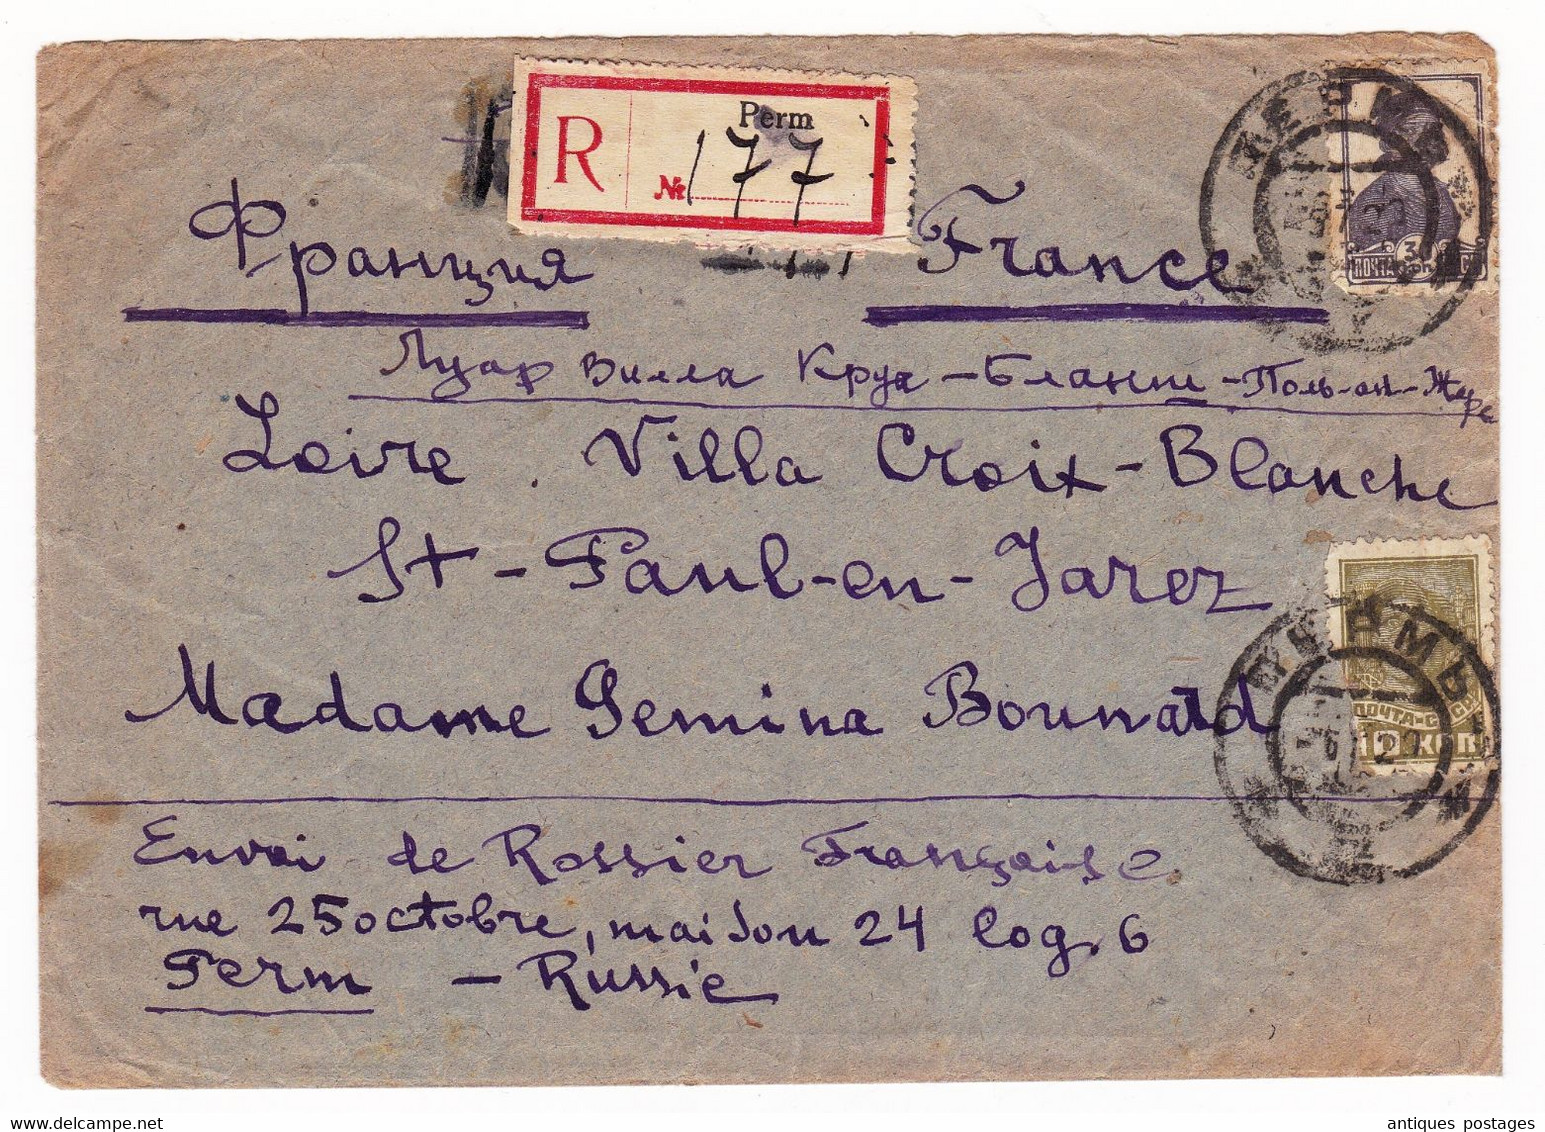 Perm
R № 177
Франция France
Луар Вилла Круа-Бланш-Поль-ан-Жаре
Loire. Villa Croix-Blanche
St-Paul-en-Jarez
Madame Gemina Bounard
Envoi de Rossier Française
rue 25 octobre, maison 24 log. 6
Perm - Russie
ПОЧТА
ПОЧТА-СССР
КОП
ПЕРМЬ
antiques postages